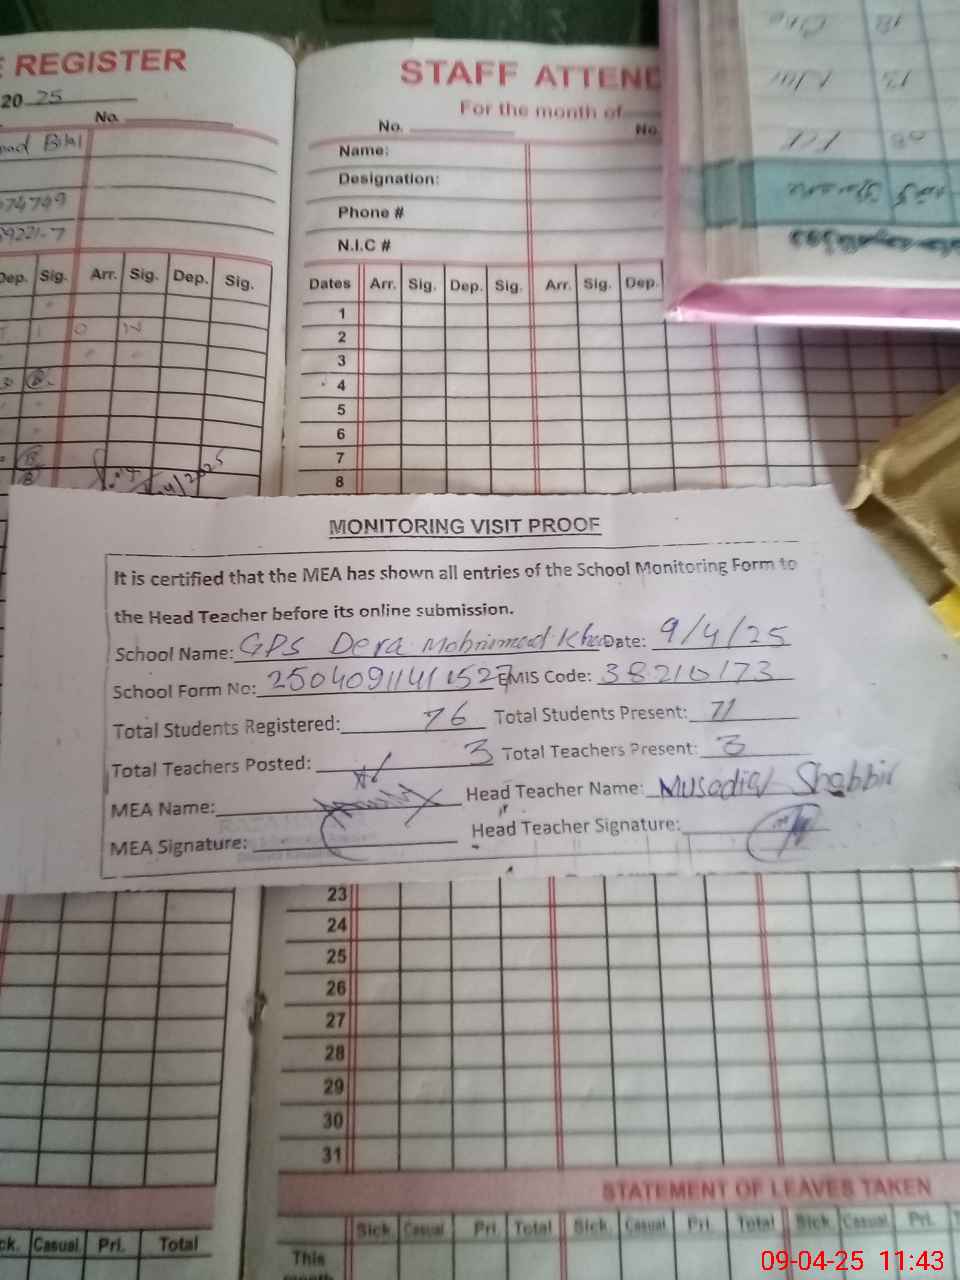 E REGISTER
20 25
No.
Bilal
74749
9221-7
Dep. Sig. Arr. Sig. Dep. Sig.
T I O N
/4/2025
STAFF ATTEND
For the month of
No. No.
Name:
Designation:
Phone #
N.I.C #
Dates Arr. Sig. Dep. Sig. Arr. Sig. Dep.
1
2
3
4
5
6
7
8
MONITORING VISIT PROOF
It is certified that the MEA has shown all entries of the School Monitoring Form to
the Head Teacher before its online submission.
School Name: GPS Dera Mohmmad Khan Date: 9/4/25
School Form No: 25040911411527 EMIS Code: 38210173
Total Students Registered: 76 Total Students Present: 71
Total Teachers Posted: 3 Total Teachers Present: 3
MEA Name: Head Teacher Name: Musadiq Shabbir
MEA Signature: Head Teacher Signature:
23
24
25
26
27
28
29
30
31
STATEMENT OF LEAVES TAKEN
Sick. Casual Pri. Total Sick. Casual Pri. Total Sick. Casual Pri.
ck. Casual. Pri. Total
This
month
09-04-25 11:43